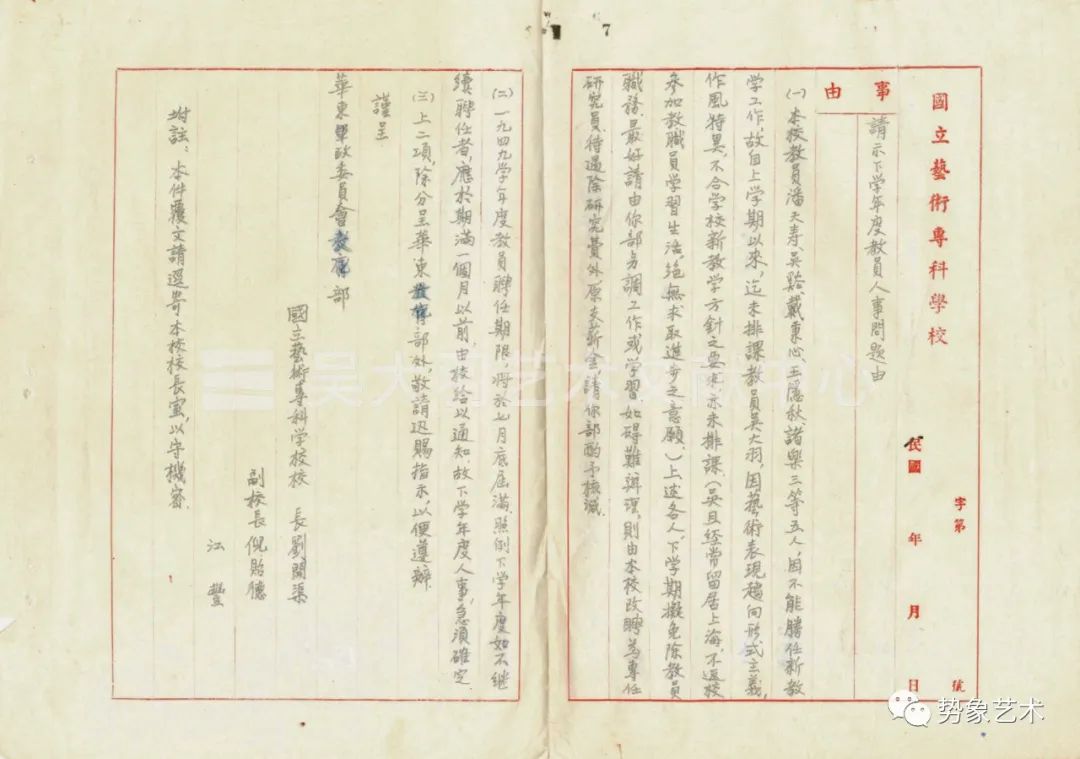 7
國立藝術專科學校
字第 號
民國 年 月 日
事由
請示下学年度教員人事問題由
(一)本校教員潘天寿、吳茀之、戴秉心、王隱秋、諸樂三等五人,因不能勝任新教
学工作,故自上学期以來,迄未排課教員吳大羽,因藝術表現趨向形式主義,
作風特異,不合学校新教学方針之要求亦未排課(吳且經常留居上海,不返校
参加教職員学習生活,絕無求取進步之意願。)上述各人,下学期擬免除教員
職務,最好請由你部另調工作或学習,如碍難辦理,則由本校改聘為專任
研究員,待遇除研究費外原支薪金請你部酌予核減
(二)一九四九学年度教員聘任期限,將於七月底屆滿,照例下学年度如不継
續聘任者,應於期滿一個月以前,由校給以通知,故下学年度人事,急須確定
(三)上二項,除分呈華東教育部外,敬請迅賜指示,以便遵辦
謹呈
華東軍政委員會教育部
國立藝術專科学校校 長劉開渠
副校長倪貽德
江 豐
坿註:本件覆文請逕寄本校校長室,以守機密
吴大羽艺术文献中心
势象艺术